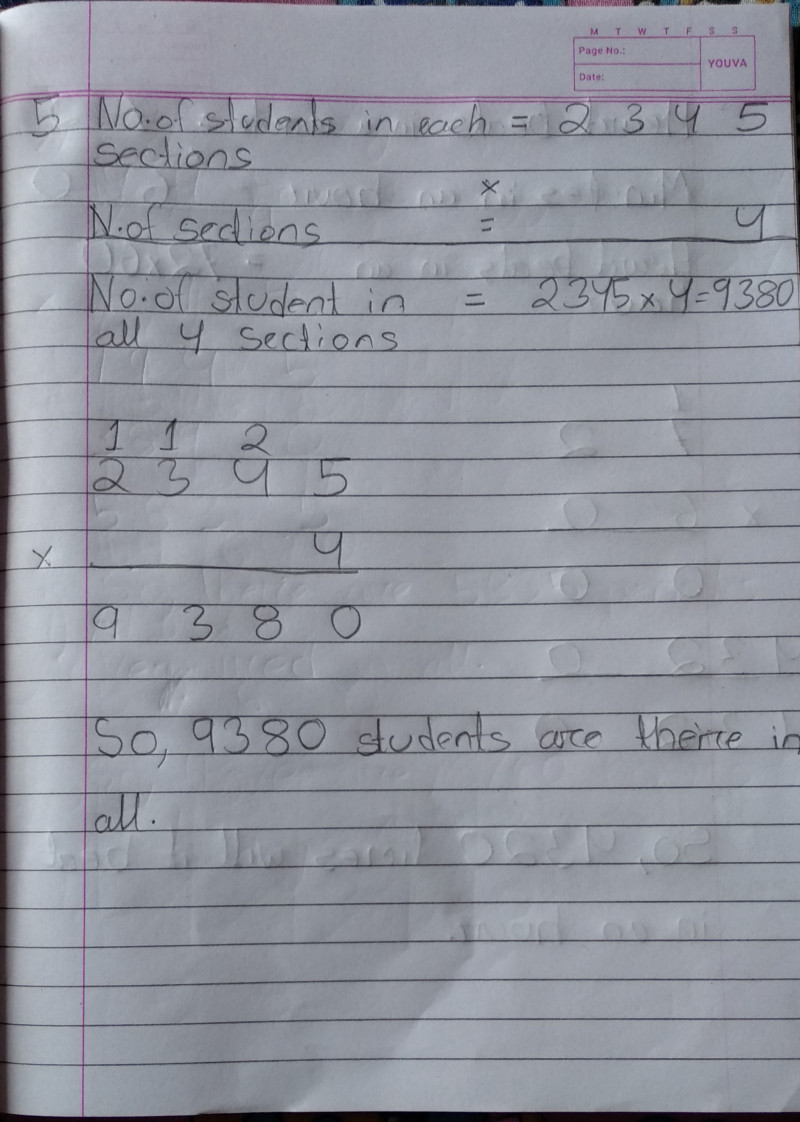 M T W T F S S
Page No.:
YOUVA
Date:
5 No.of students in each = 2 3 4 5
sections
×
N.of sections = 4
No.of student in = 2345×4=9380
all 4 sections
1 1 2
2 3 4 5
× 4
9 3 8 0
So, 9380 students are there in
all.